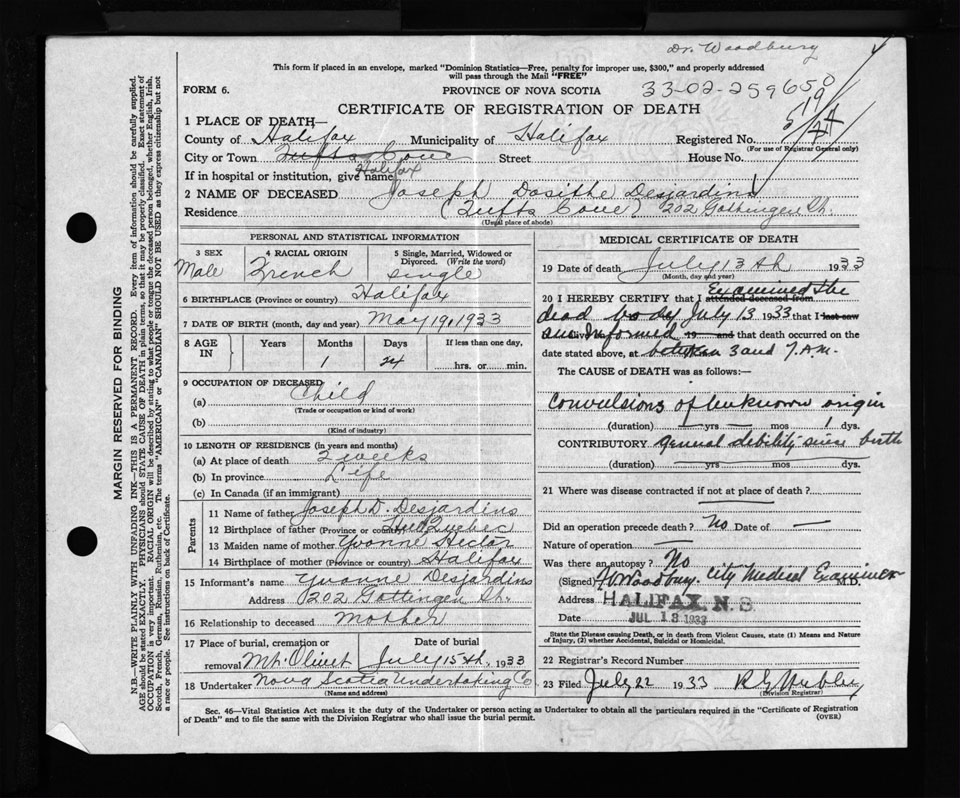 Dr. Woodbury
This form if placed in an envelope, marked "Dominion Statistics—Free, penalty for improper use, $300," and properly addressed
will pass through the Mail "FREE"
FORM 6.
PROVINCE OF NOVA SCOTIA
33-02-259650
CERTIFICATE OF REGISTRATION OF DEATH
519
44
1 PLACE OF DEATH—
County of Halifax Municipality of Halifax Registered No.
(For use of Registrar General only)
City or Town Tufts Cove Street House No.
Halifax
If in hospital or institution, give name
2 NAME OF DECEASED Joseph Dosithe Desjardins
Residence (Tufts Cove) 202 Gottingen St.
(Usual place of abode)
PERSONAL AND STATISTICAL INFORMATION
3 SEX
Male
4 RACIAL ORIGIN
French
5 Single, Married, Widowed or
Divorced. (Write the word)
single
6 BIRTHPLACE (Province or country) Halifax
7 DATE OF BIRTH (month, day and year) May 19, 1933
8 AGE IN
Years Months Days If less than one day,
1 24 hrs. or min.
9 OCCUPATION OF DECEASED
(a) Child
(Trade or occupation or kind of work)
(b)
(Kind of industry)
10 LENGTH OF RESIDENCE (in years and months)
(a) At place of death 2 weeks
(b) In province Life
(c) In Canada (if an immigrant)
Parents
11 Name of father Joseph D. Desjardins
12 Birthplace of father (Province or country) Quebec
13 Maiden name of mother Yvonne Hector
14 Birthplace of mother (Province or country) Halifax
15 Informant's name Yvonne Desjardins
Address 202 Gottingen St.
16 Relationship to deceased mother
17 Place of burial, cremation or
removal Mt. Olivet
Date of burial
July 15th, 1933
18 Undertaker Nova Scotia Undertaking Co
(Name and address)
MEDICAL CERTIFICATE OF DEATH
19 Date of death July 13th 1933
(Month, day and year)
Examined the
20 I HEREBY CERTIFY that I attended deceased from
dead body July 13 1933 that I last saw
am Informed 19 and that death occurred on the
date stated above, at between 3 and 7 A.M.
The CAUSE OF DEATH was as follows:
Convulsions of unknown origin
(duration) yrs mos 1 dys.
CONTRIBUTORY general debility since birth
(duration) yrs mos dys.
21 Where was disease contracted if not at place of death?
Did an operation precede death? No Date of —
Nature of operation —
Was there an autopsy? No
(Signed) Woodbury. City Medical Examiner
Address HALIFAX, N. S
Date JUL 13 1933
State the Disease causing Death, or in death from Violent Causes, state (1) Means and Nature
of Injury, (2) whether Accidental, Suicidal or Homicidal.
22 Registrar's Record Number
23 Filed July 22 1933
(Division Registrar)
Sec. 46—Vital Statistics Act makes it the duty of the Undertaker or person acting as Undertaker to obtain all the particulars required in the "Certificate of Registration
of Death" and to file the same with the Division Registrar who shall issue the burial permit.
(OVER)
MARGIN RESERVED FOR BINDING
N.B.—WRITE PLAINLY WITH UNFADING INK—THIS IS A PERMANENT RECORD. Every item of information should be carefully supplied.
AGE should be stated EXACTLY. PHYSICIANS should STATE CAUSE OF DEATH in plain terms, so that it may be properly classified. Exact statement of
OCCUPATION is very important. RACIAL ORIGIN will be described by stating to what people or tongue the deceased person belonged, whether English, Irish,
Scotch, French, German, Russian, Ruthenian, etc. The terms "AMERICAN" or "CANADIAN" SHOULD NOT BE USED as they express citizenship but not
a race or people. See instructions on back of Certificate.